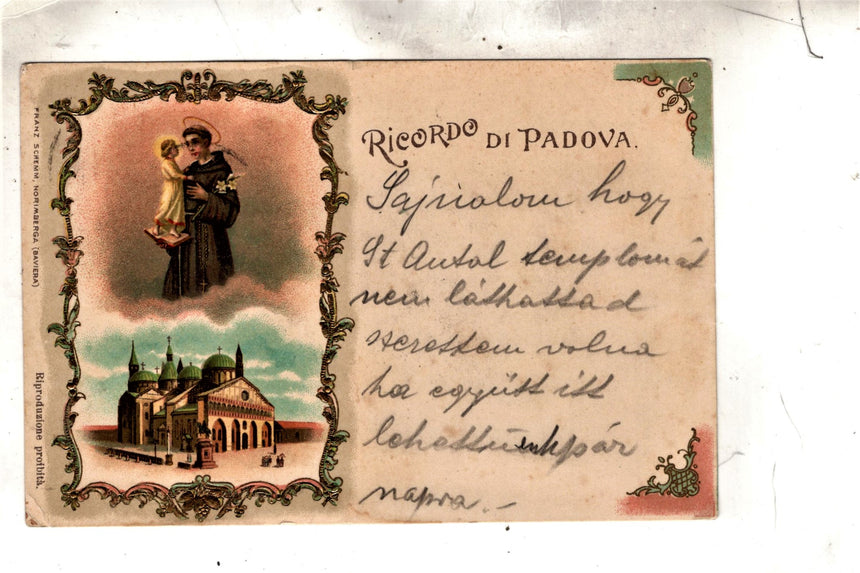 RICORDO DI PADOVA.
Sajnálom hogy
St Antal templomát
nem láthattad
szerettem volna
ha együtt itt
lehettünk pár
napra. –
FRANZ SCHEMM, NORIMBERGA (BAVIERA)
Riproduzione proibita.